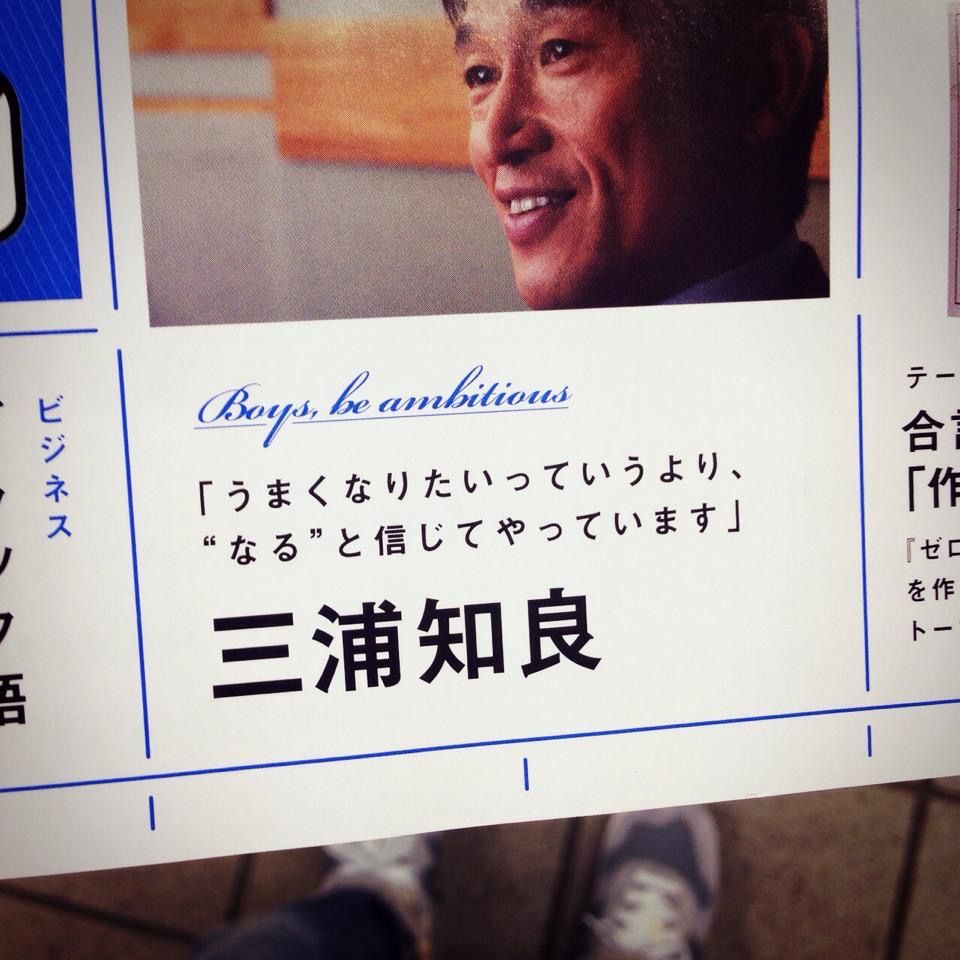 ビジネス
Boys, be ambitious
「うまくなりたいっていうより、
“なる”と信じてやっています」
三浦知良
テー
合
「作
『ゼロ
を作
トー
ック
語